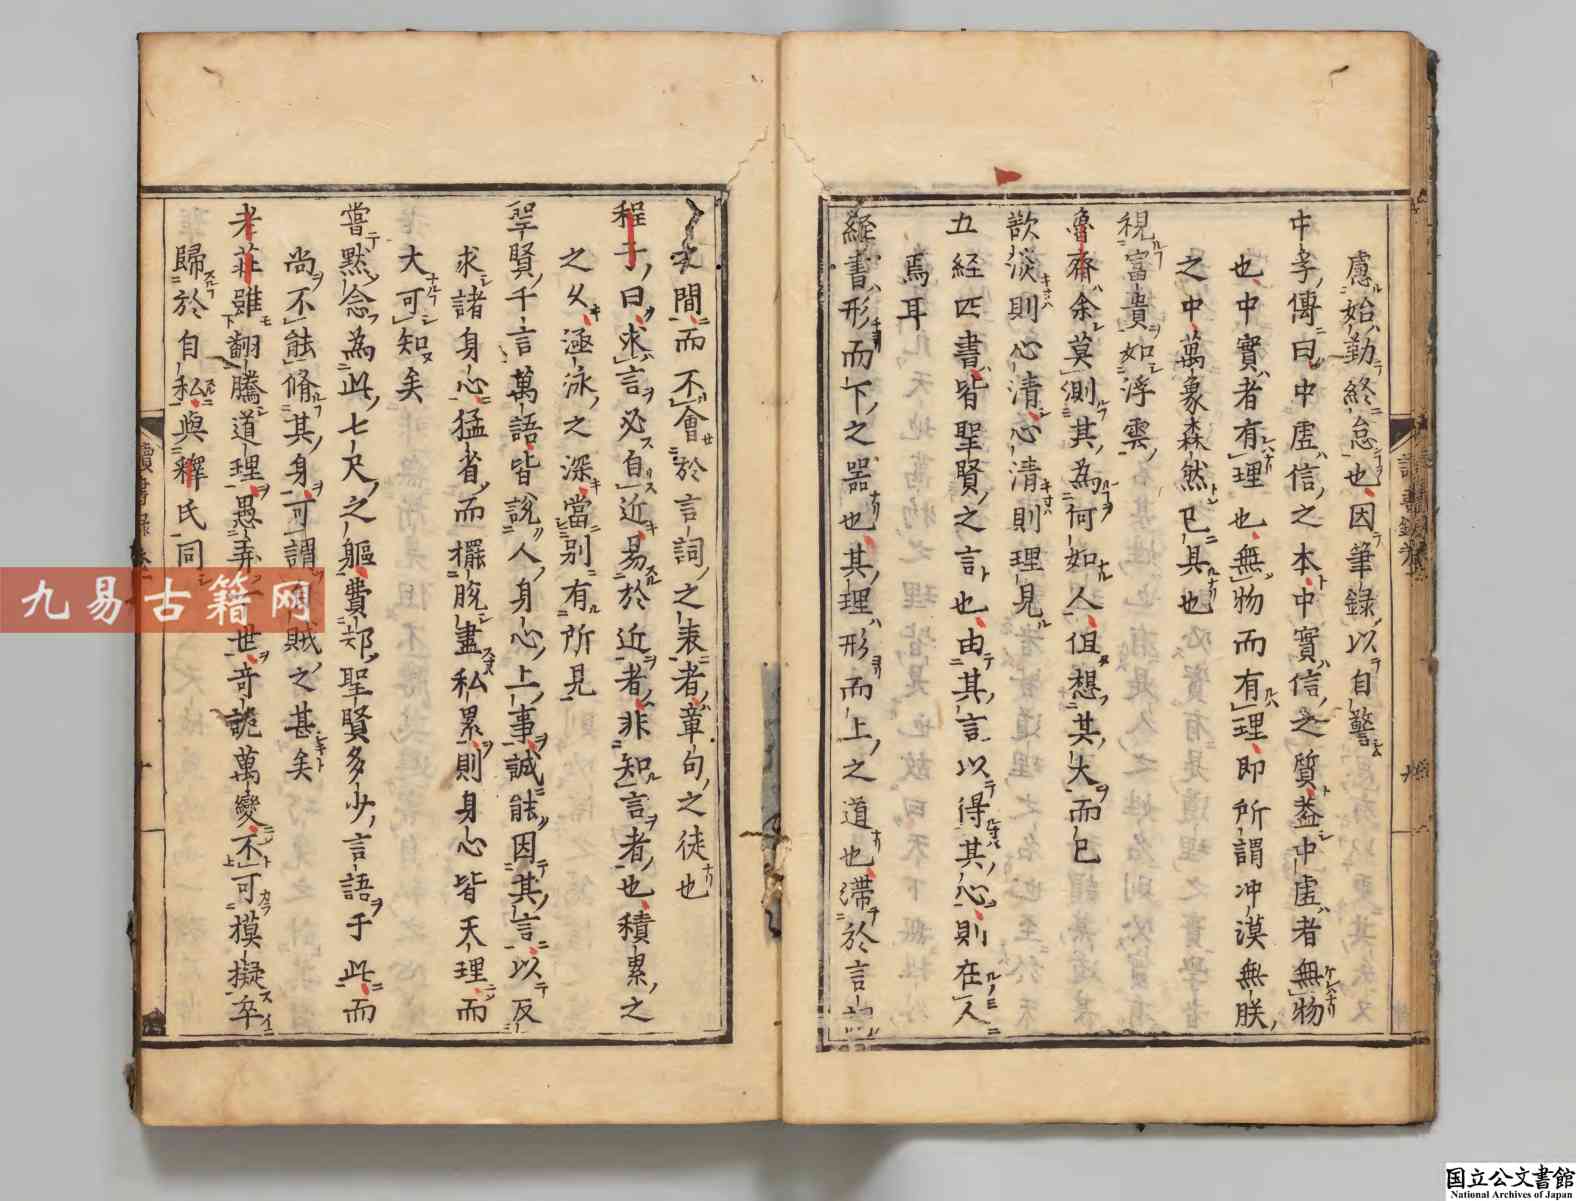 慮始勤終怠也因筆録以自警
中孚傳曰中虚信之本中實信之質盖中虚者無物
也中實者有理也無物而有理即所謂冲漠無朕
之中萬象森然已具也
視富貴如浮雲
魯齋余莫測其為何如人但想其大而已
欲淡則心清心清則理見
五経四書皆聖賢之言也由其言以得其心則在人
焉耳
経書形而下之器也其理形而上之道也滯於言
文間而不會於言詞之表者章句之徒也
程子曰求言必自近易於近者非知言者也積累之
之久涵泳之深當別有所見
聖賢千言萬語皆説人身心上事誠能因其言以反
求諸身心猛省而擺脱盡私累則身心皆天理而
大可知矣
嘗黙念為此七尺之軀費却聖賢多少言語于此而
尚不能脩其身可謂賊之甚矣
老莊雖翻騰道理愚弄一世竒詭萬變不可摸擬卒
歸於自私與釋氏同
讀書録
九易古籍网
国立公文書館
National Archives of Japan